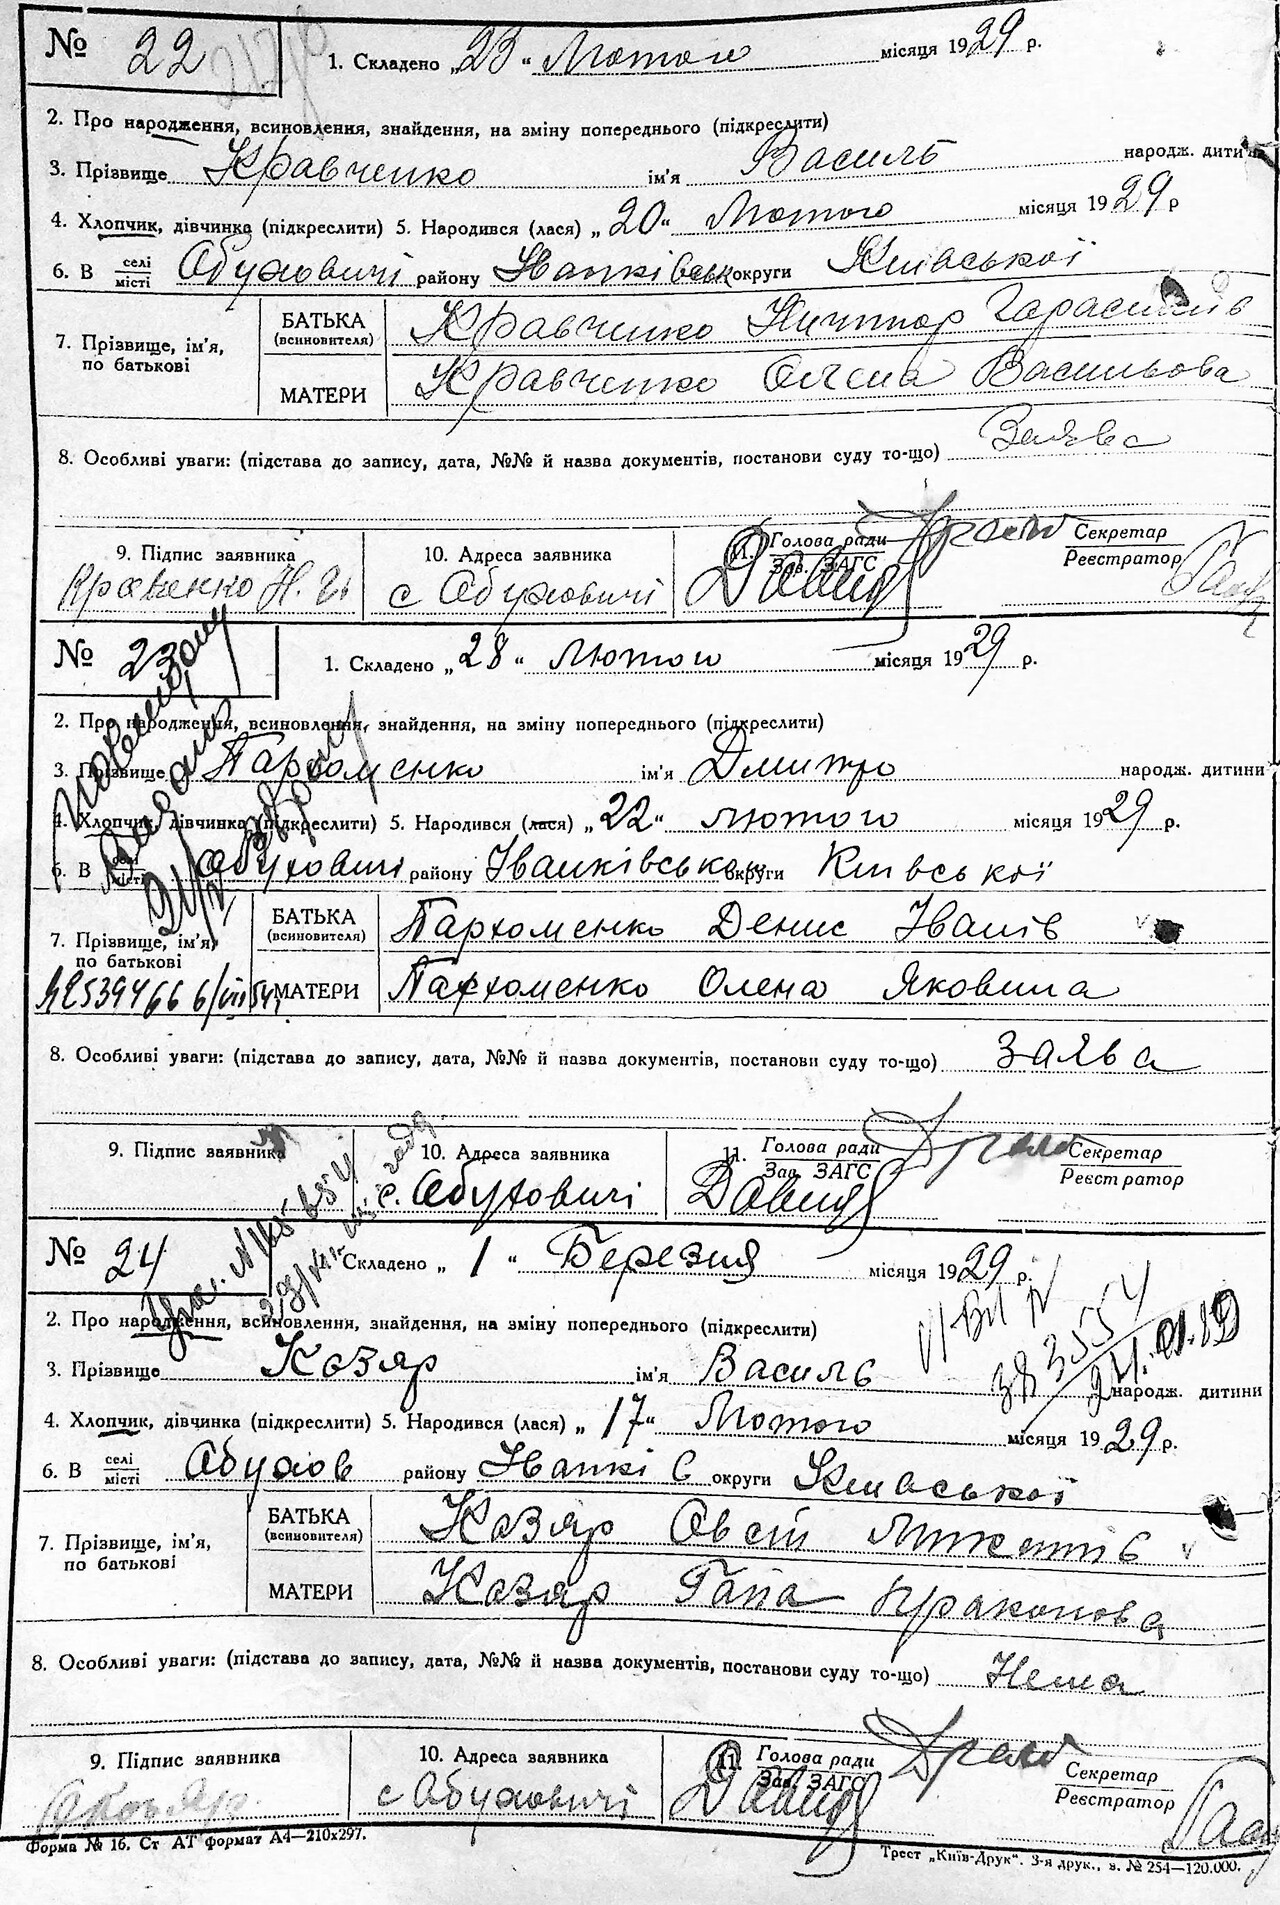 № 22
1. Складено „23" Лютого місяця 1929 р.
2. Про народження, всиновлення, знайдення, на зміну попереднього (підкреслити)
3. Прізвище Кравченко ім'я Василь народж. дитини
4. Хлопчик, дівчинка (підкреслити) 5. Народився (лася) „20" Лютого місяця 1929 р
6. В селі місті Обуховичі району Іванківськ округи Київської
7. Прізвище, ім'я, по батькові
БАТЬКА (всиновителя) Кравченко Ничипор Гарасимів
МАТЕРИ Кравченко Олена Васильова
8. Особливі уваги: (підстава до запису, дата, №№ й назва документів, постанови суду то-що) Заява
9. Підпис заявника 10. Адреса заявника 11. Голова ради Зав. ЗАГС Секретар Реєстратор
с Обуховичі
№ 23
1. Складено „28" лютого місяця 1929 р.
2. Про народження, всиновлення, знайдення, на зміну попереднього (підкреслити)
3. Прізвище Пархоменко ім'я Дмитро народж. дитини
4. Хлопчик, дівчинка (підкреслити) 5. Народився (лася) „22" лютого місяця 1929 р.
6. В селі місті Обуховичі району Іванківського округи Київської
7. Прізвище, ім'я, по батькові
БАТЬКА (всиновителя) Пархоменко Денис Іванів
МАТЕРИ Пархоменко Олена Яковина
8. Особливі уваги: (підстава до запису, дата, №№ й назва документів, постанови суду то-що) Заява
9. Підпис заявника 10. Адреса заявника 11. Голова ради Зав. ЗАГС Секретар Реєстратор
с. Обуховичі
№ 24
1. Складено „1" Березня місяця 1929 р.
2. Про народження, всиновлення, знайдення, на зміну попереднього (підкреслити)
3. Прізвище Козяр ім'я Василь народж. дитини
4. Хлопчик, дівчинка (підкреслити) 5. Народився (лася) „17" Лютого місяця 1929 р.
6. В селі місті Обухов району Іванків округи Київської
7. Прізвище, ім'я, по батькові
БАТЬКА (всиновителя) Козяр
МАТЕРИ Козяр Гапа
8. Особливі уваги: (підстава до запису, дата, №№ й назва документів, постанови суду то-що) Нема
9. Підпис заявника 10. Адреса заявника 11. Голова ради Зав. ЗАГС Секретар Реєстратор
с Обуховичі
Форма № 16. Ст АТ формат А4—210х297.
Трест „Київ-Друк". 3-я друк., з. № 254—120.000.